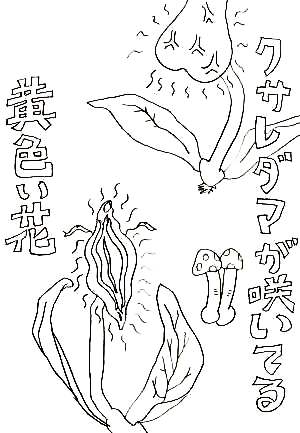 クサレダマが咲いてる
黄色い花